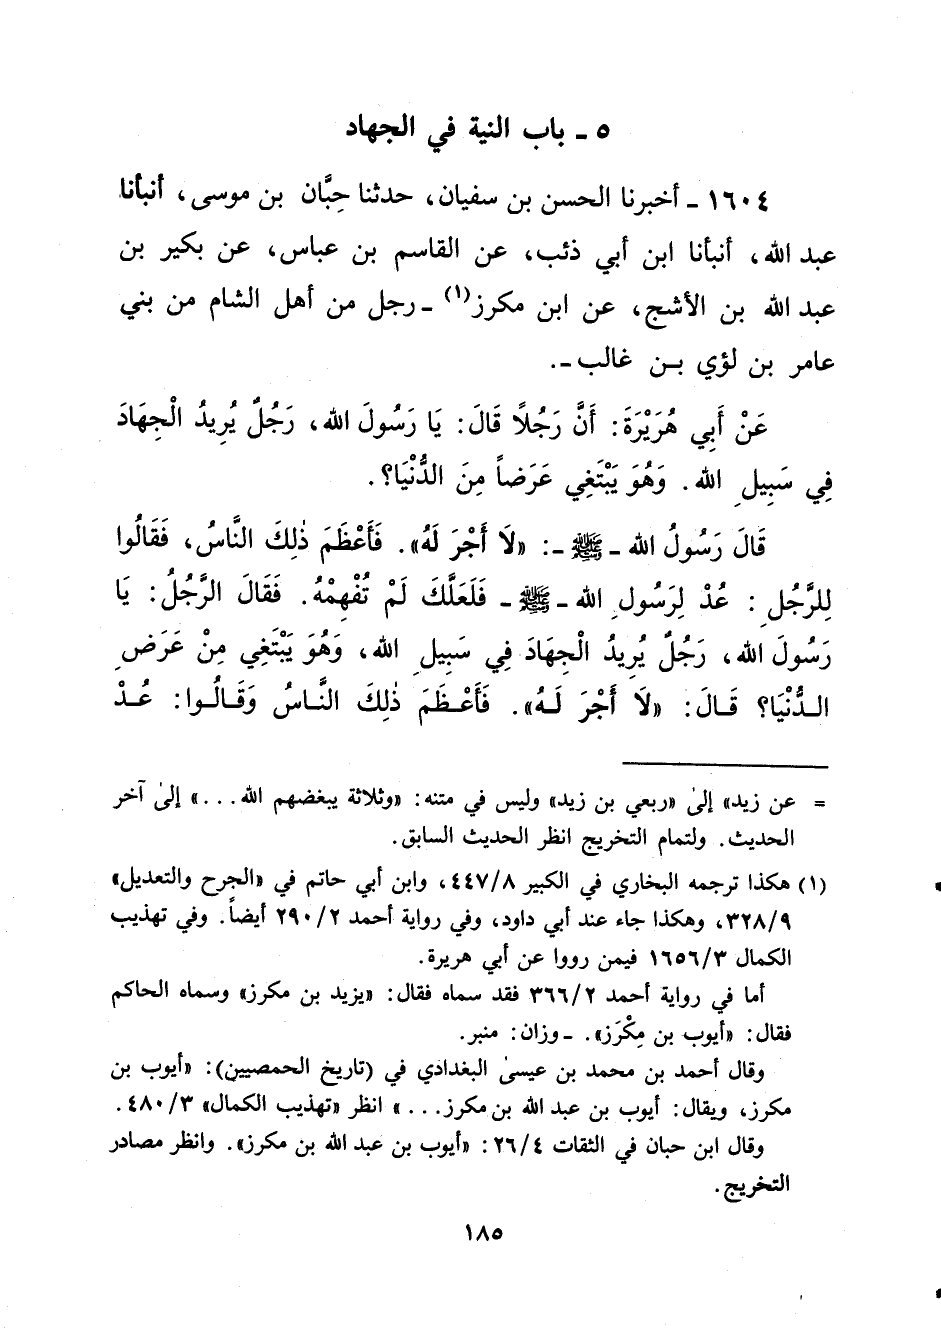 ٥ ـ باب النية في الجهاد
١٦٠٤ ـ أخبرنا الحسن بن سفيان، حدثنا حِبَّان بن موسى، أنبأنا
عبد الله، أنبأنا ابن أبي ذئب، عن القاسم بن عباس، عن بكير بن
عبد الله بن الأشج، عن ابن مكرز(١) ـ رجل من أهل الشام من بني
عامر بن لؤي بـن غالب ـ.
عَنْ أَبِي هُرَيْرَةَ: أَنَّ رَجُلاً قَالَ: يَا رَسُولَ الله، رَجُلٌ يُرِيدُ الْجِهَادَ
فِي سَبِيلِ الله. وَهُوَ يَبْتَغِي عَرَضاً مِنَ الدُّنْيَا؟.
قَالَ رَسُولُ الله ـ ﷺ ـ: «لاَ أَجْرَ لَهُ». فَأَعْظَمَ ذٰلِكَ النَّاسُ، فَقَالُوا
لِلرَّجُلِ: عُدْ لِرَسُولِ الله ـ ﷺ ـ فَلَعَلَّكَ لَمْ تُفْهِمْهُ. فَقَالَ الرَّجُلُ: يَا
رَسُولَ الله، رَجُلٌ يُرِيدُ الْجِهَادَ فِي سَبِيلِ الله، وَهُوَ يَبْتَغِي مِنْ عَرَضِ
الـدُّنْيَا؟ قَـالَ: «لاَ أَجْرَ لَـهُ». فَأَعْـظَمَ ذٰلِكَ النَّـاسُ وَقَـالُـوا: عُـدْ
= عن زيد» إلىٰ «ربعي بن زيد» وليس في متنه: «وثلاثة يبغضهم الله...» إلىٰ آخر
الحديث. ولتمام التخريج انظر الحديث السابق.
(١) هكذا ترجمه البخاري في الكبير ٤٤٧/٨، وابن أبي حاتم في «الجرح والتعديل»
٣٢٨/٩، وهكذا جاء عند أبي داود، وفي رواية أحمد ٢٩٠/٢ أيضاً. وفي تهذيب
الكمال ١٦٥٦/٣ فيمن رووا عن أبي هريرة.
أما في رواية أحمد ٣٦٦/٢ فقد سماه فقال: «يزيد بن مكرز» وسماه الحاكم
فقال: «أيوب بن مِكْرَز». ـ وزان: منبر.
وقال أحمد بن محمد بن عيسىٰ البغدادي في (تاريخ الحمصيين): «أيوب بن
مكرز، ويقال: أيوب بن عبد الله بن مكرز...» انظر «تهذيب الكمال» ٤٨٠/٣.
وقال ابن حبان في الثقات ٢٦/٤: «أيوب بن عبد الله بن مكرز». وانظر مصادر
التخريج.
١٨٥